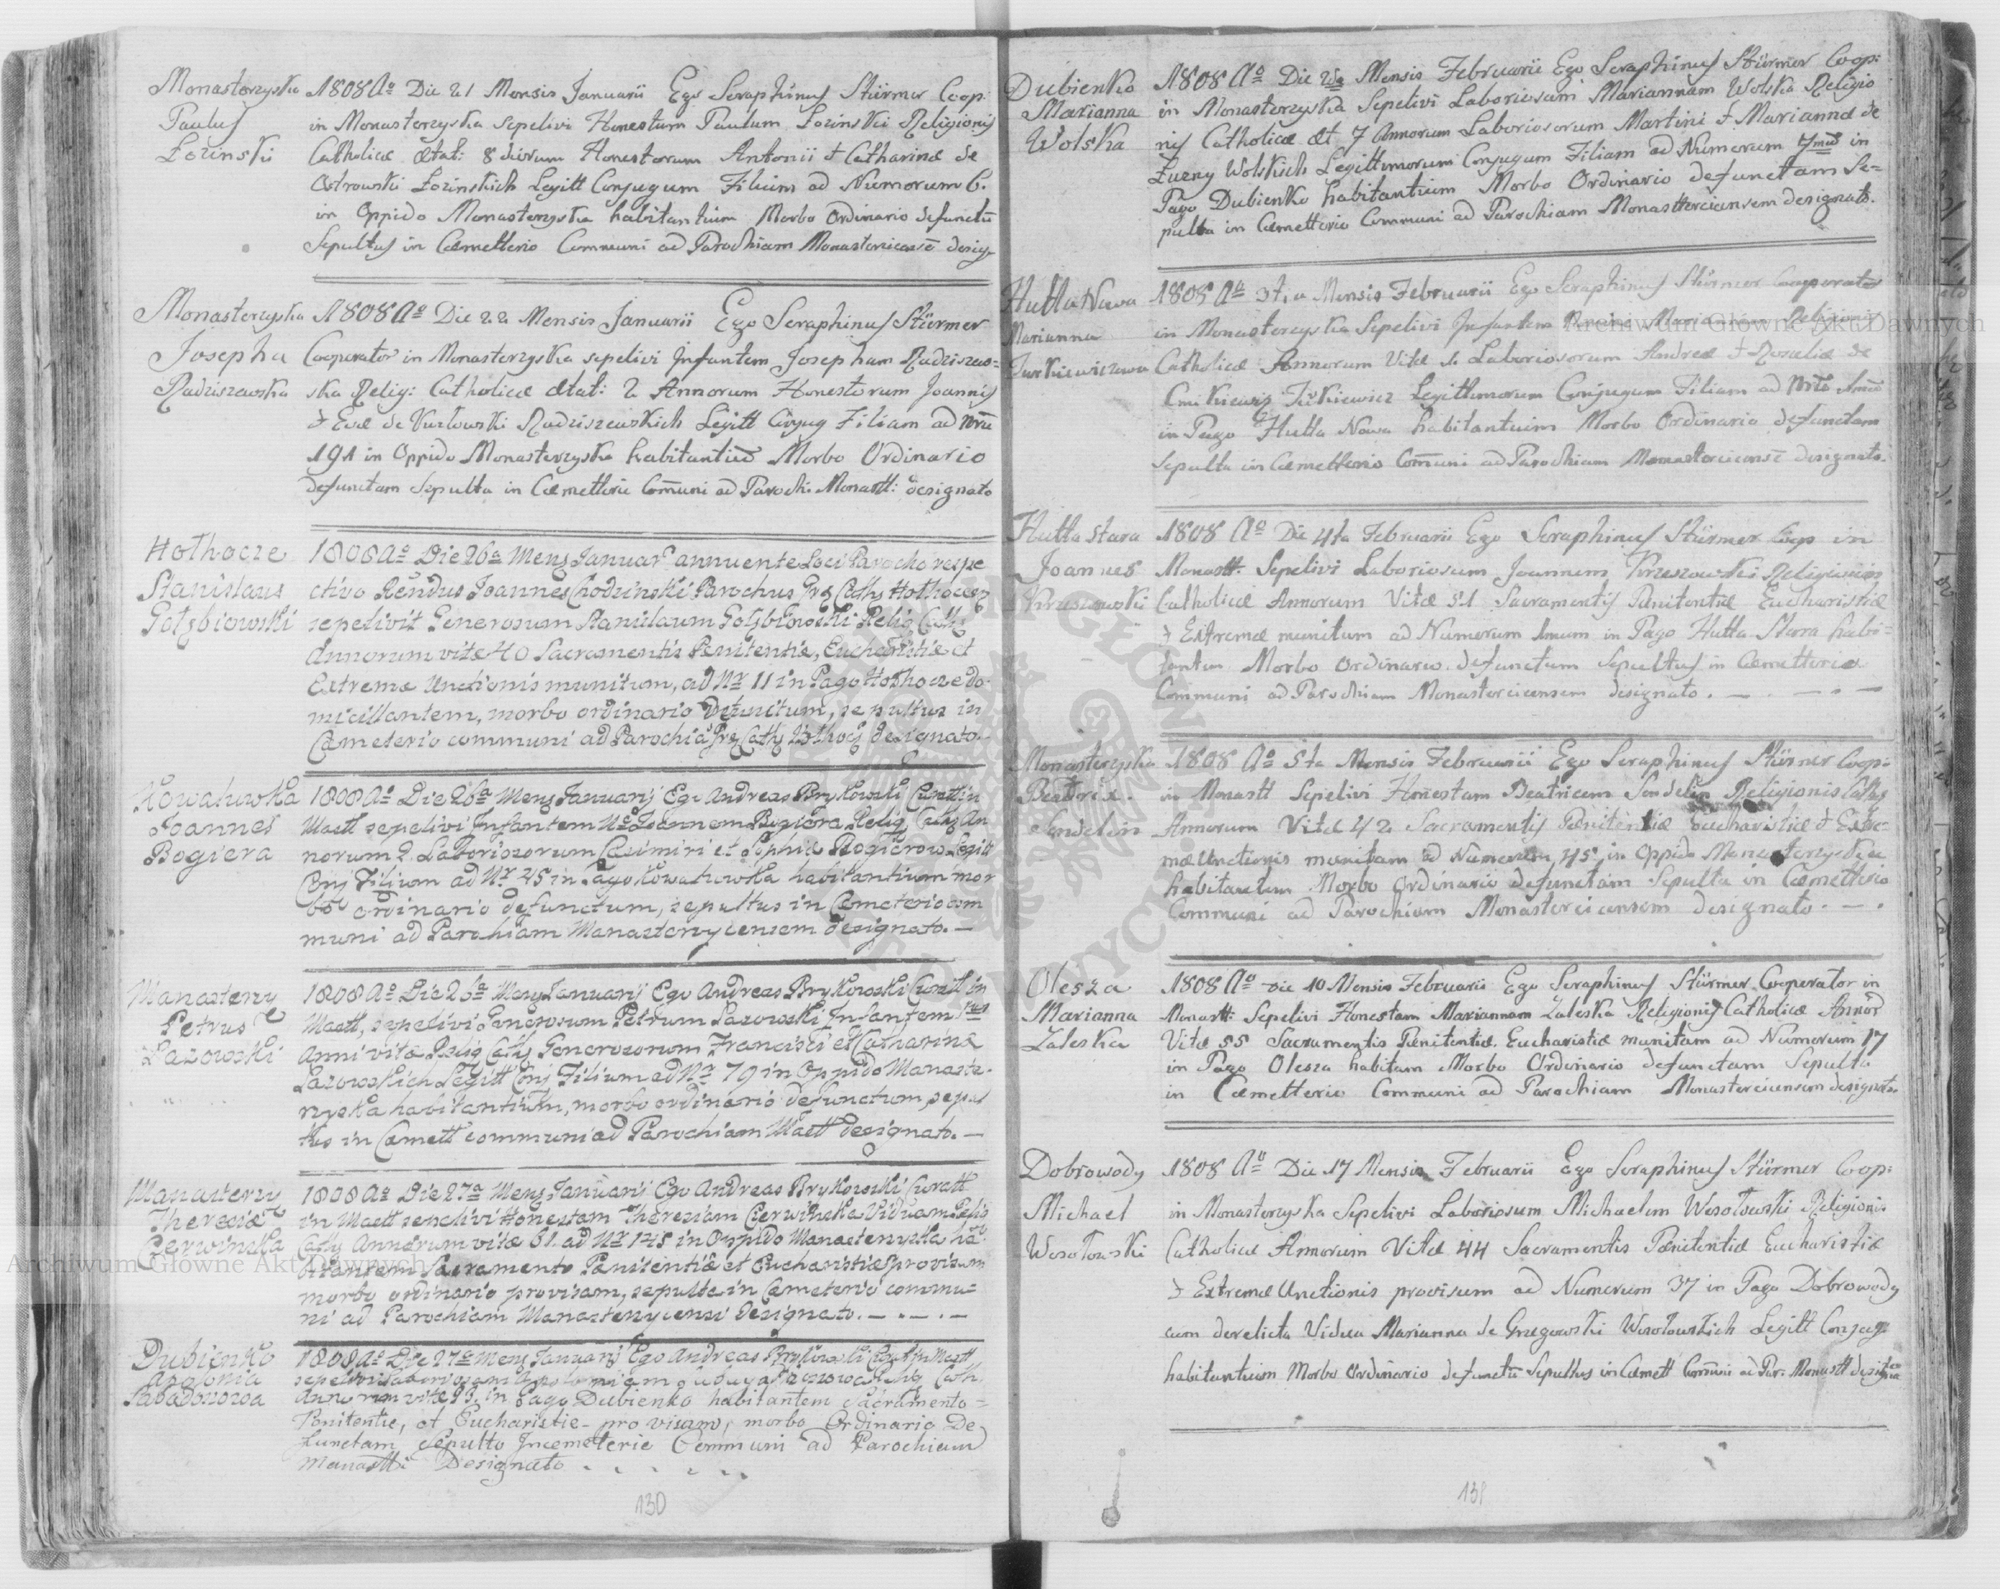 Monasterzyska
Paulus
Łozinski
1808 Aº Die 21 Mensis Januarii Ego Seraphinus Stürmer Coop:
in Monasterzyska sepelivi Honestum Paulum Łozinski Religionis
Catholicæ ætat: 8 dierum Honestorum Antonii & Catharinæ de
Ostrowski Łozinskich Legitt Conjugum Filium ad Numorum 6.
in Oppido Monasterzyska habitantium Morbo Ordinario defunctū
Sepultus in Cæmetterio Communi ad Parochiam desig
Monasterzyska
Josepha
Radziszewska
1808 Aº Die 22 Mensis Januarii Ego Seraphinus Stürmer
Cooperator in Monasterzyska sepelivi Infantem Josepham Radziszew=
ska Relig: Catholicæ ætat: 2 Annorum Honestorum Joannis
& Evæ de Radziszewskich Legitt Conjug Filiam ad Nrū
191 in Oppido Monasterzyska habitantiū Morbo Ordinario
defunctam Sepulta in Cæmetterio Comuni ad Paroch. Monastt: designato
Hothocze
Stanislaus
Gołębiowski
1808 Aº Die 26ª Mens Januar annuente Loci Parocho respe
ctivo Rendus Joannes Chodzinski Parochus
sepelivit Generosum Stanislaum Gołębiowski Relig Cath
Annorum vitæ 40 Sacramentis Penitentiæ, Eucharistiæ et
Extremæ Unctionis munitum, ad Nr 11 in Pago Hothocze do
micillantem, morbo ordinario defunctum, sepultus in
Cæmeterio communi ad Parochia designato.
Kowahowka
Joannes
Bogiera
1808 Aº Die 26ª Mens Januarij Ego Andreas Brykowski Curatt in
Mastt sepelivi Infantem Joannem Bogiera Relig Cath An
norum 2. Laboriosorum Casimiri et Sophiæ Bogierow Legitt
Conj Filium ad Nr 25 in Pago Kowahowka habitantium mor
bo ordinario defunctum, sepultus in Cæmeterio com
muni ad Parochiam Manasterzycensem designato. —
Manasterzy
Petrus
Lazowski
1808 Aº Die 26ª Mens Januarij Ego Andreas Brykowski Curatt in
Mastt, sepelivi Generosum Petrum Lazowski Infantem
Anni vitæ Relig Cath Generosorum Francisci et Catharinæ
Lazowskich Legitt Conj Filium ad Nr 79 in Oppido Manaste-
rzyska habitantium, morbo ordinario defunctum, sepul
tus in Cæmett communi ad Parochiam Mastt designato. —
Manasterzy
Theresiæ
Czerwinska
1808 Aº Die 27ª Mens Januarij Ego Andreas Brykowski Curatt
in Mastt sepelivi Honestam Theresiam Czerwinska Viduam Relig
Cath Annorum vitæ 61. ad Nr 175 in Oppido Manasterzyska ha
bitantem Sacramento Pænitentiæ et Eucharistiæ provisum
morbo ordinario provisam, sepulta in Cæmeterio commu=
ni ad Parochiam Manasterzycensi designato. — . — . —
Dubienko
Apolonia
1808 Aº Die 27ª Mens Januarij Ego Andreas Brykowski Curatt in Mastt
Annorum vitæ in Pago Dubienko habitantem Sacramento=
Penitentie, et Eucharistie provisam, morbo Ordinario De
functam Sepulto Incemeterie Communi ad Parochiam
Manastti Designato
130
Dubienko
Marianna
Wolska
1808 Aº Die Mensis Februarii Ego Seraphinus Stürmer Coop:
in Monasterzyska Sepelivi Laboriosam Mariannam Wolska Religio
nis Catholicæ æt 7 Annorum Laboriosorum Martini & Mariannæ de
Wolskich Legittimorum Conjugum Filiam ad Numorum 7mū in
Pago Dubienko habitantium Morbo Ordinario defunctam Se=
pulta in Cæmetterio Communi ad Parochiam Monastterciensem designato.
Hutta Nowa
Marianna
Turkiewiczowa
1808 Aº 3tia Mensis Februarii Ego Seraphinus Stürmer Cooperator
in Monasterzyska Sepelivi Infantem Mariannam Religionis
Catholicæ Annorum Vitæ Laboriosorum Andreæ & Rosaliæ de
Legittimorum Conjugum Filiam ad
in Pago Hutta Nowa habitantium Morbo Ordinario defunctam
Sepulta in Cæmetterio Comuni ad Parochiam designato.
Hutta Stara
Joannes
Krzeszowski
1808 Aº Die 4ta Februarii Ego Seraphinus Stürmer Coop in
Monastt. Sepelivi Laboriosum Joannem Krzeszowski Religionis
Catholicæ Annorum Vitæ 51 Sacramentis Pænitentiæ Eucharistiæ
& Extremæ munitum ad Numerum in Pago Hutta Stara habi=
tantem Morbo Ordinario defunctum Sepultus in Cæmetterio
Communi ad Parochiam Monasterciensem designato. — . — . —
Monasterzyska
Beatrix.
1808 Aº 5ta Mensis Februarii Ego Seraphinus Stürmer Coop:
in Monastt Sepelivi Honestam Beatricem Religionis Cath
Annorum Vitæ 42 Sacramentis Pænitentiæ Eucharistiæ & Extre=
mæ Unctionis munitam ad Numerum 45 in Oppido Monasterzyska
habitantem Morbo Ordinario defunctam Sepulta in Cæmetterio
Communi ad Parochiam Monasterciensem designato. — .
Olesza
Marianna
Zaleska
1808 Aº Die 10 Mensis Februarii Ego Seraphinus Stürmer Cooperator in
Monastt: Sepelivi Honestam Mariannam Zaleska Religionis Catholicæ Annor
Vitæ 55 Sacramentis Pænitentiæ, Eucharistiæ munitam ad Numorum 17
in Pago Olesza habitam Morbo Ordinario defunctam Sepulta
in Cæmetterio Communi ad Parochiam Monasterciensem designato.
Dobrowody
Michael
Wosołowski
1808 Aº Die 17 Mensis Februarii Ego Seraphinus Stürmer Coop:
in Monasterzyska Sepelivi Laboriosum Michaelem Wosołowski Religionis
Catholicæ Annorum Vitæ 44 Sacramentis Pænitentiæ Eucharistiæ
& Extremæ Unctionis provisum ad Numerum 37 in Pago Dobrowody
cum derelicta Vidua Marianna de Gregowski Wosołowskich Legitt Conjug
habitantium Morbo Ordinario defunctū Sepultus in Cæmett Comūni ad Par: Monastt design
131
Archiwum Główne Akt Dawnych
Archiwum Główne Akt Dawnych